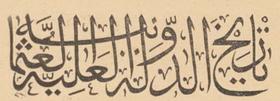 تاريخ الدولة العلية العثمانية